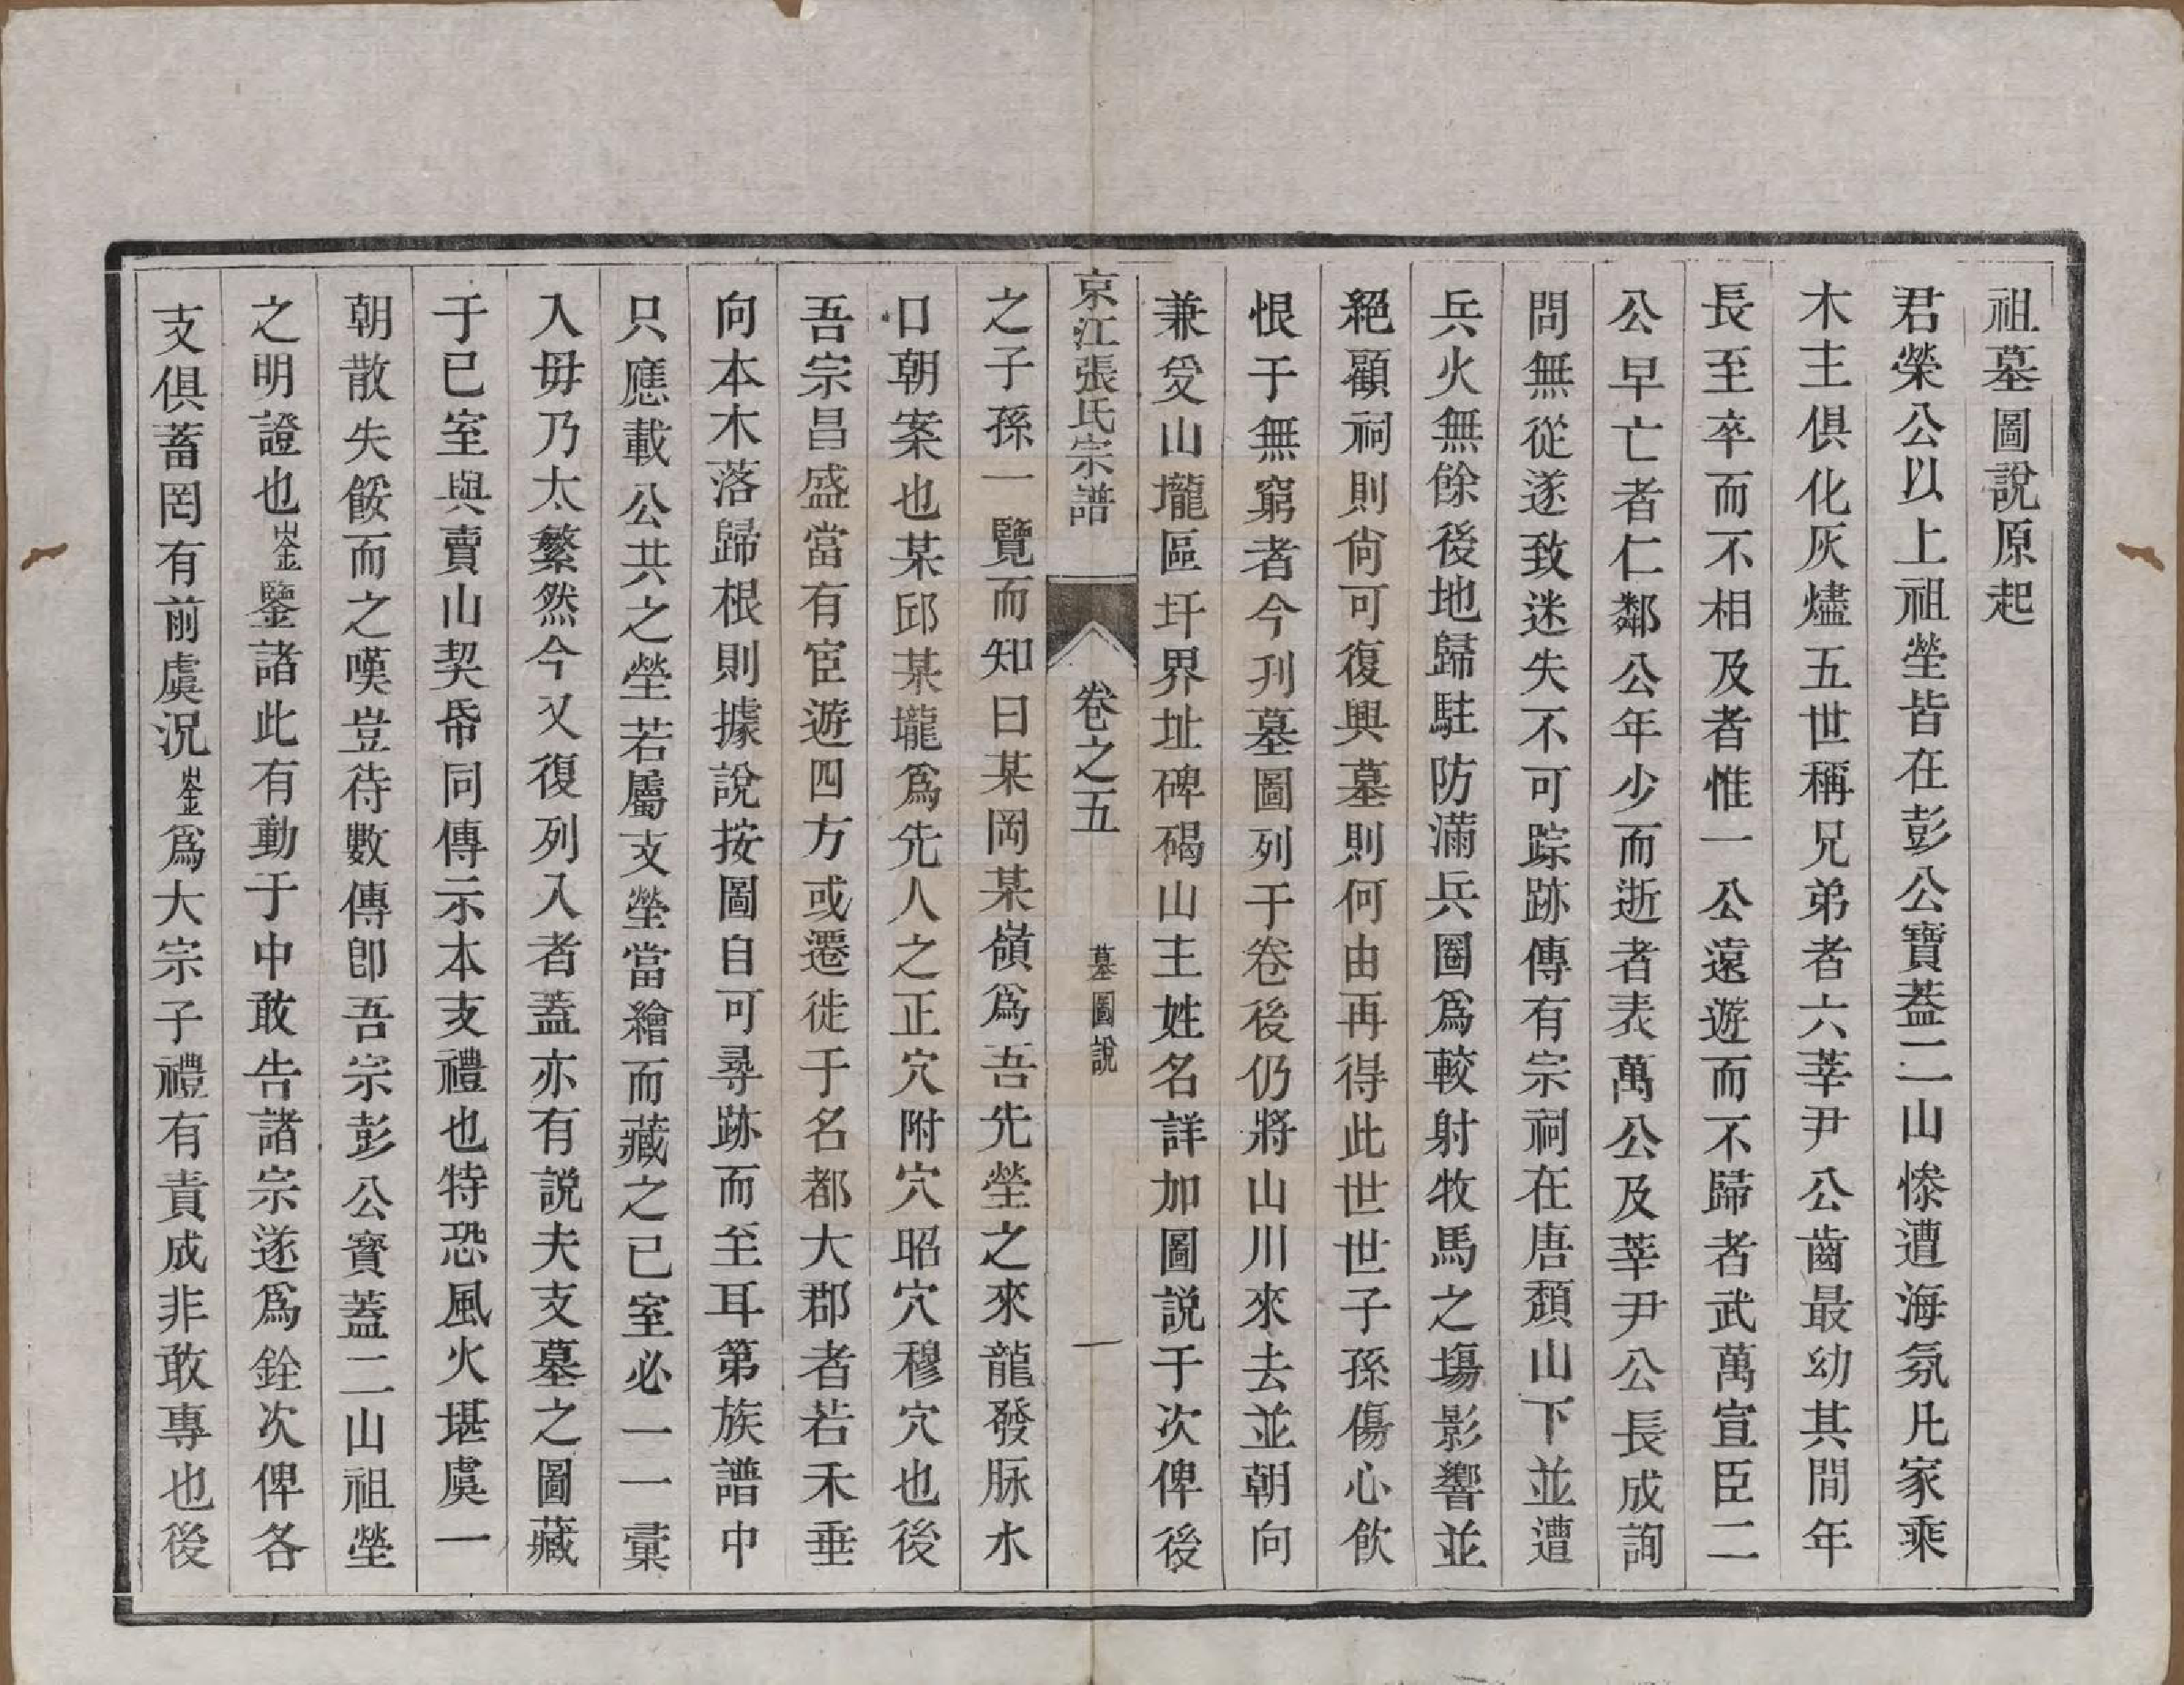 祖墓圖說原起
君榮公以上祖塋皆在彭公寶蓋二山慘遭海氛凡家乘
木主俱化灰燼五世稱兄弟者六莘尹公齒最幼其間年
長至卒而不相及者惟一公遠遊而不歸者武萬宣臣二
公早亡者仁鄰公年少而逝者表萬公及莘尹公長成詢
問無從遂致迷失不可踪跡傳有宗祠在唐頽山下並遭
兵火無餘後地歸駐防滿兵圈爲較射牧馬之塲影響並
絕顧祠則尙可復興墓則何由再得此世世子孫傷心飲
恨于無窮者今刋墓圖列于卷後仍將山川來去並朝向
兼爰山壠區圩界址碑碣山主姓名詳加圖説于次俾後
京江張氏宗譜 卷之五 墓圖說 一
之子孫一覽而知曰某岡某嶺爲吾先塋之來龍發脉水
口朝案也某邱某壠爲先人之正穴附穴昭穴穆穴也後
吾宗昌盛當有宦遊四方或遷徙于名都大郡者若禾垂
向本木落歸根則據說按圖自可尋跡而至耳第族譜中
只應載公共之塋若屬支塋當繪而藏之已室必一一彙
入毋乃太繁然今又復列入者蓋亦有説夫支墓之圖藏
于已室與賣山契帋同傳示本支禮也特恐風火堪虞一
朝散失餒而之嘆豈待數傳卽吾宗彭公寶蓋二山祖塋
之明證也崟鑒諸此有動于中敢告諸宗遂爲銓次俾各
支俱蓄罔有前虞况崟爲大宗子禮有責成非敢專也後